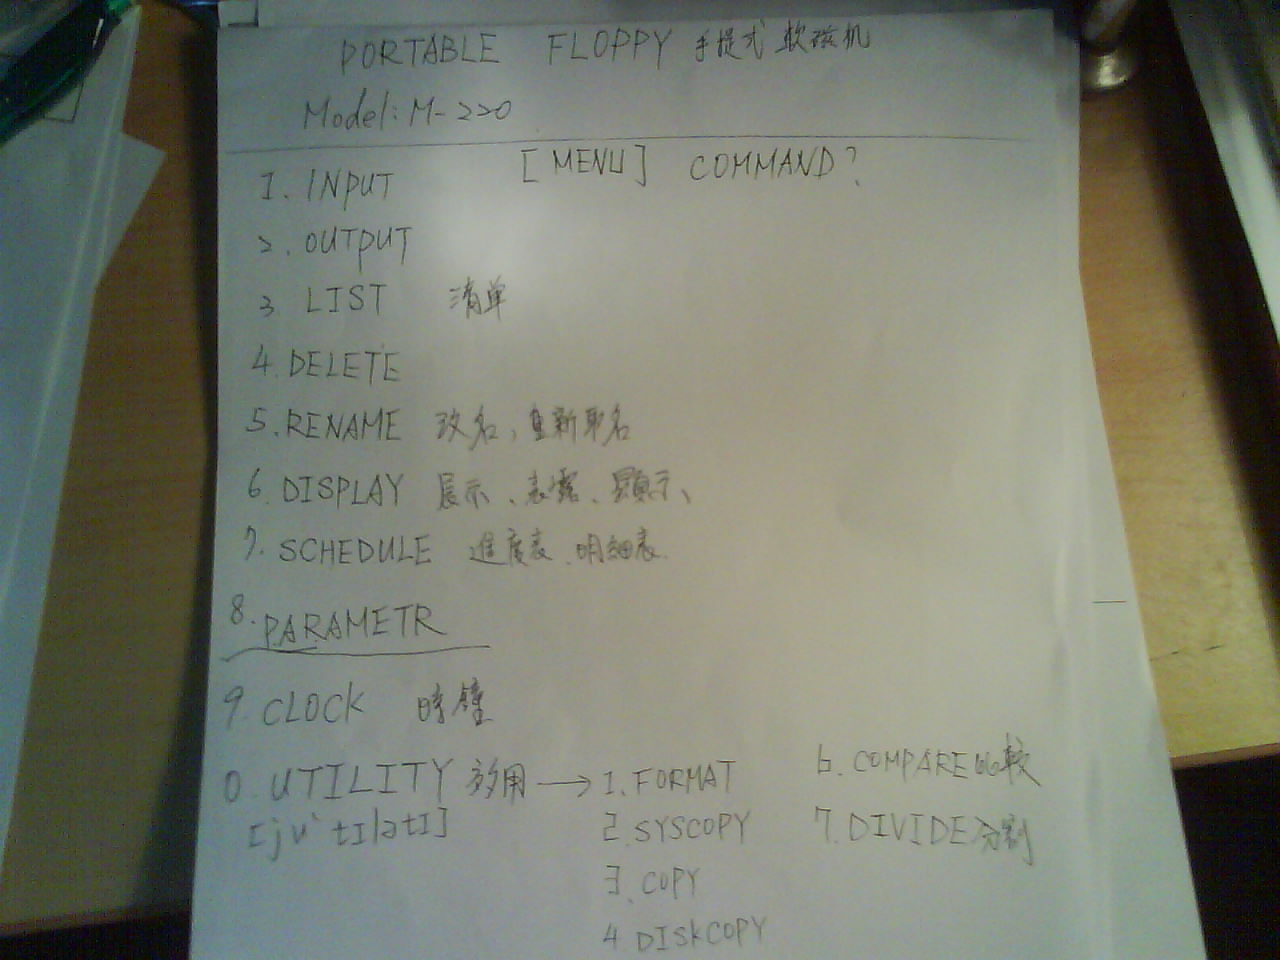 PORTABLE FLOPPY 手提式软磁机
Model: M-220
[MENU] COMMAND?
1. INPUT
2. OUTPUT
3 LIST 清单
4. DELETE
5. RENAME 改名, 重新取名
6. DISPLAY 展示、表露、顯示、
7. SCHEDULE 進度表、明細表.
8. PARAMETR
9. CLOCK 時鐘
0. UTILITY 多用 → 1. FORMAT
[ju`tIlətI]
2. SYSCOPY
3. COPY
4 DISKCOPY
6. COMPARE 比較
7. DIVIDE 分割